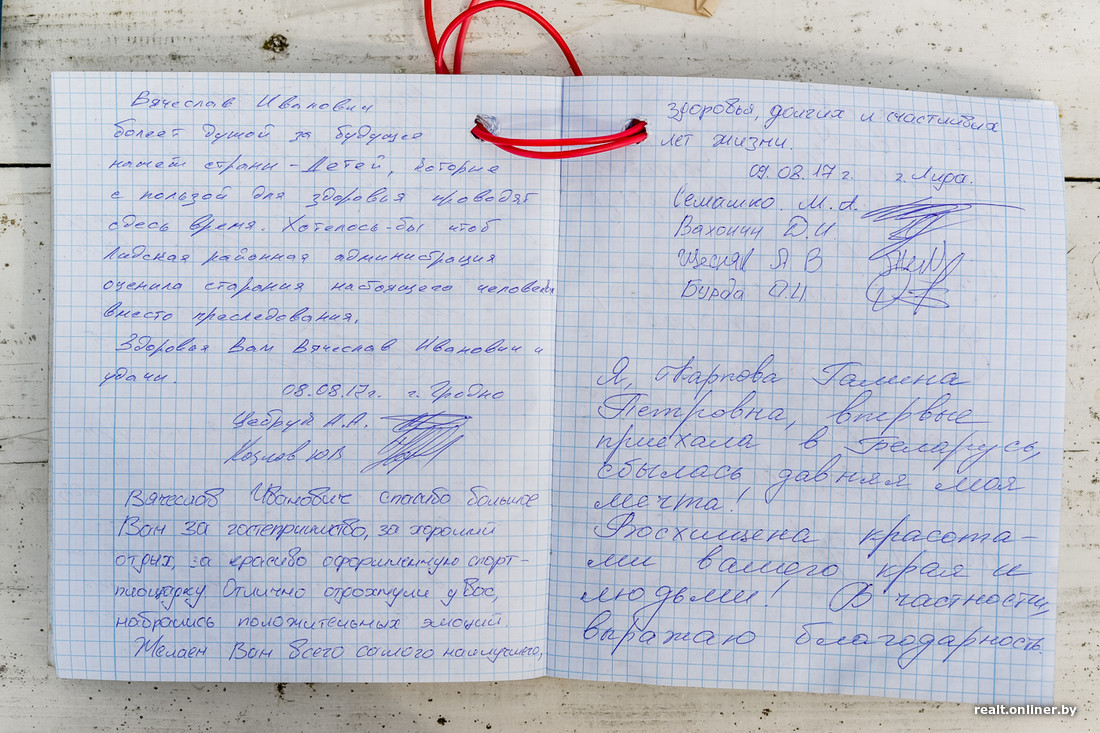 Вячеслав Иванович
болеет душой за будущее
нашей страны - Детей, которые
с пользой для здоровья проводят
здесь время. Хотелось-бы чтоб
Лидская районная администрация
оценила старания настоящего человека
вместо преследования.
Здоровья Вам Вячеслав Иванович и
удачи.
08.08.17г. г. Гродно
Цебрук А.А.
Козлов Ю В
Вячеслав Иванович спасибо большое
Вам за гостеприимство, за хороший
отдых, за красиво оформленную спорт-
площадку Отлично отдохнули у Вас,
набрались положительных эмоций.
Желаем Вам всего самого наилучшего,
здоровья, долгих и счастливых
лет жизни.
09.08.17 г. г. Лида.
Семашко М.А.
Вахончич Д.И.
А В
Бурда О.И.
Я, Карпова Галина
Петровна, впервые
приехала в Беларусь,
сбылась давняя моя
мечта!
Восхищена красота-
ми вашего края и
людьми! В частности,
выражаю благодарность.
realt.onliner.by